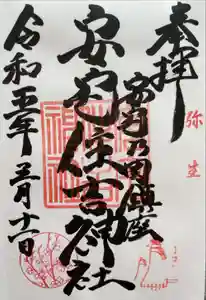 奉拝
弥生
安宅乃関鎮座
安宅住吉神社
令和五年三月十一日